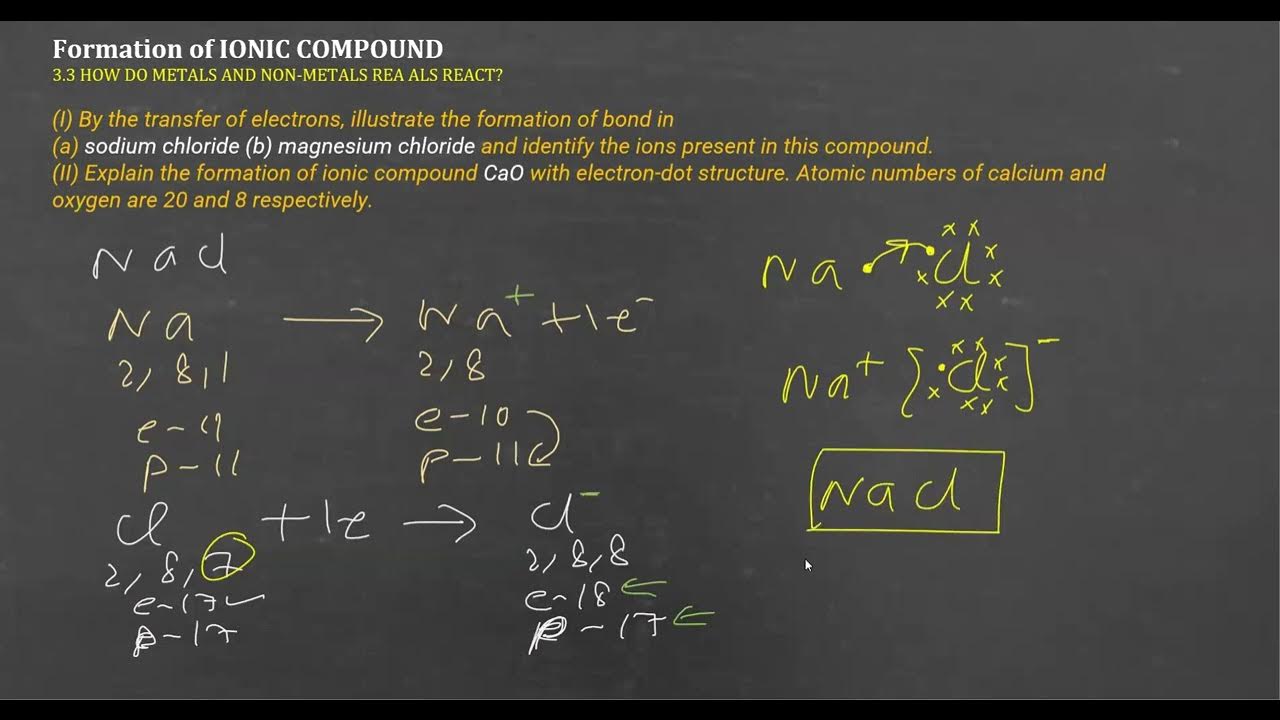 Formation of IONIC COMPOUND
3.3 HOW DO METALS AND NON-METALS REA ALS REACT?
(I) By the transfer of electrons, illustrate the formation of bond in
(a) sodium chloride (b) magnesium chloride and identify the ions present in this compound.
(II) Explain the formation of ionic compound CaO with electron-dot structure. Atomic numbers of calcium and
oxygen are 20 and 8 respectively.
NaCl
Na → Na⁺ + 1e⁻
2, 8, 1 2, 8
e – 11 e – 10
p – 11 p – 11
Cl + 1e → Cl⁻
2, 8, 7 2, 8, 8
e – 17 e – 18
p – 17 p – 17
Na Cl
Na⁺ [Cl]⁻
NaCl